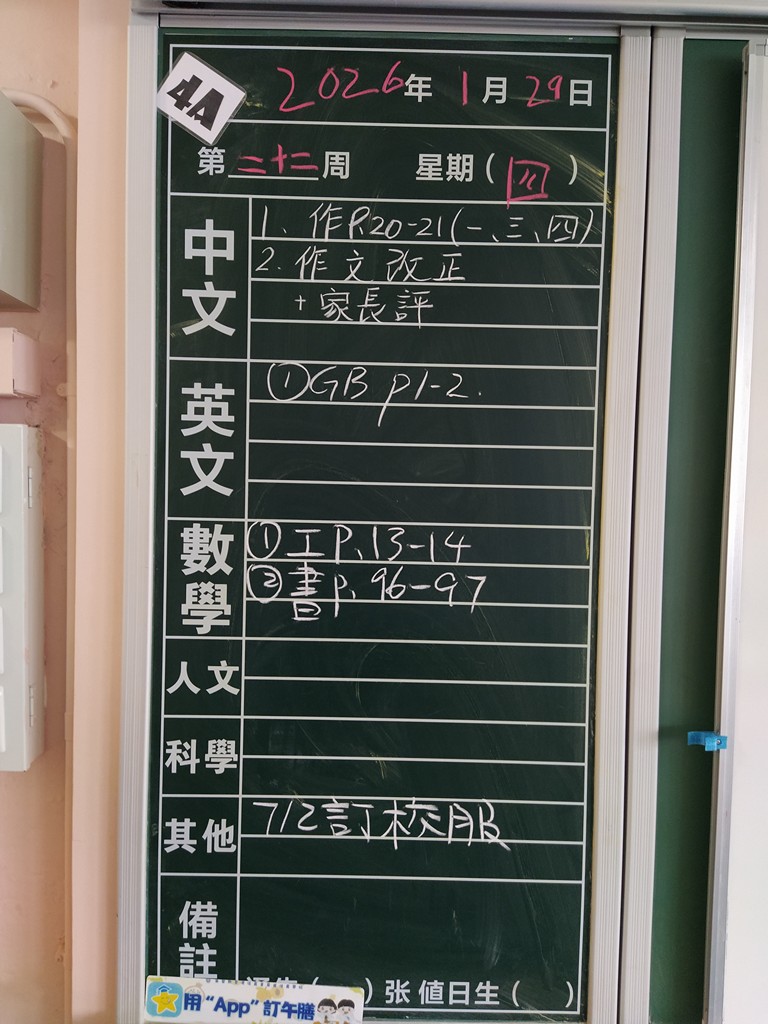 4A
2026年 1月 29日
第二十二周 星期(四)
中文
1、作P.20-21(一、三、四)
2. 作文改正
+家長評
英文
①GB p1-2.
數學
①工P.13-14
②書P.96-97
人文
科學
其他
7/2訂校服
備註
( )张 值日生( )
用“App”訂午膳